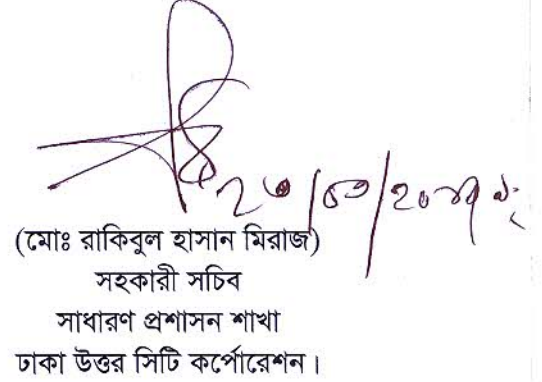 (মোঃ রাকিবুল হাসান মিরাজ)
সহকারী সচিব
সাধারণ প্রশাসন শাখা
ঢাকা উত্তর সিটি কর্পোরেশন।